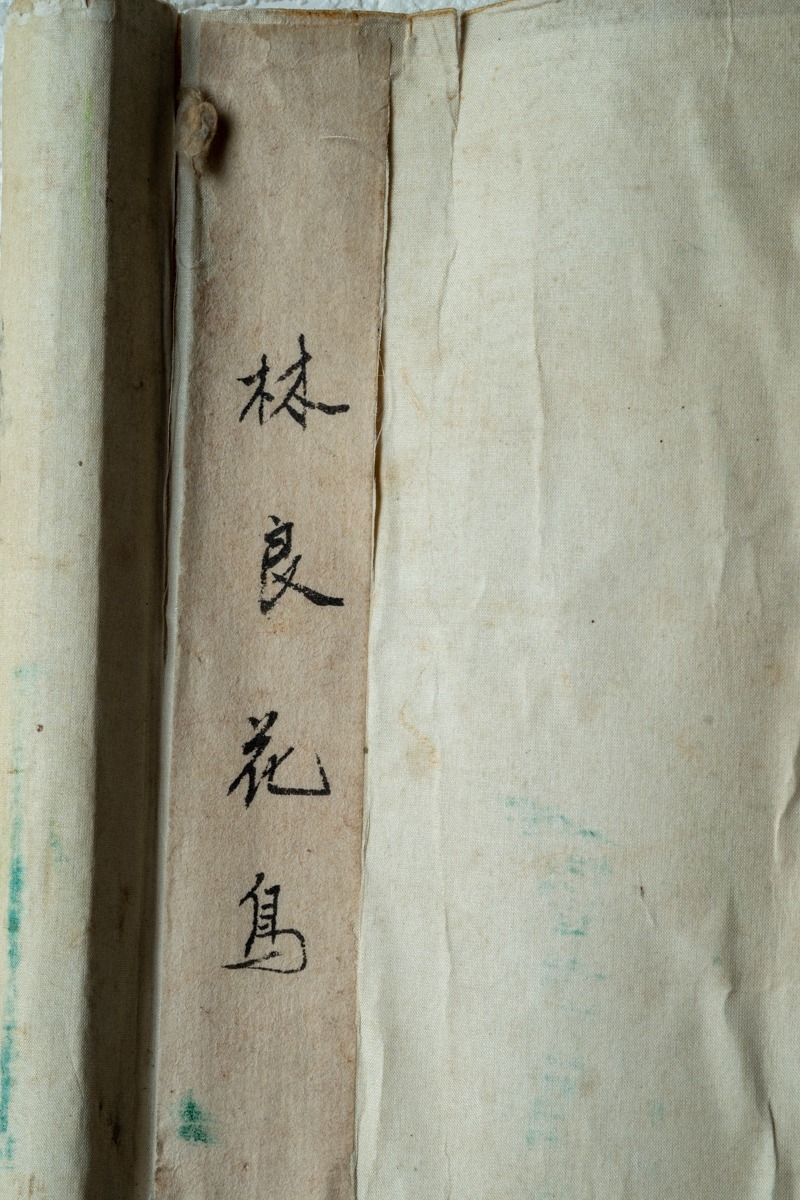 林良花鳥